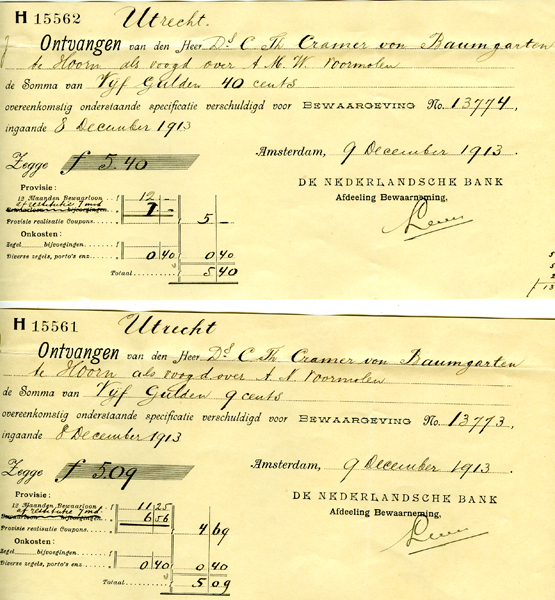 H 15562 Utrecht.
Ontvangen van den Heer Ds C Th Cramer von Baumgarten
te Hoorn als voogd over A. M. W. Voormolen
de Somma van Vyf Gulden 40 cents
overeenkomstig onderstaande specificatie verschuldigd voor BEWAARGEVING No. 13774,
ingaande 8 December 1913
Zegge f 5.40
Amsterdam, 9 December 1913.
DE NEDERLANDSCHE BANK
Afdeeling Bewaarneming,
Provisie:
12 Maanden Bewaarloon f 12 -
af restitutie 7 mnd 7 -
Provisie realisatie Coupons 5 -
Onkosten:
Zegel bijvoegingen
Diverse zegels, porto's enz. 0 40 0 40
Totaal f 5 40
H 15561 Utrecht
Ontvangen van den Heer Ds C Th Cramer von Baumgarten
te Hoorn als voogd over A. N. Voormolen
de Somma van Vyf Gulden 9 cents
overeenkomstig onderstaande specificatie verschuldigd voor BEWAARGEVING No. 13773,
ingaande 8 December 1913
Zegge f 5.09
Amsterdam, 9 December 1913.
DE NEDERLANDSCHE BANK
Afdeeling Bewaarneming,
Provisie:
12 Maanden Bewaarloon f 11 25
af restitutie 7 mnd bijvoegingen 6 56
Provisie realisatie Coupons 4 69
Onkosten:
Zegel bijvoegingen
Diverse zegels, porto's enz. 0 40 0 40
Totaal f 5 09